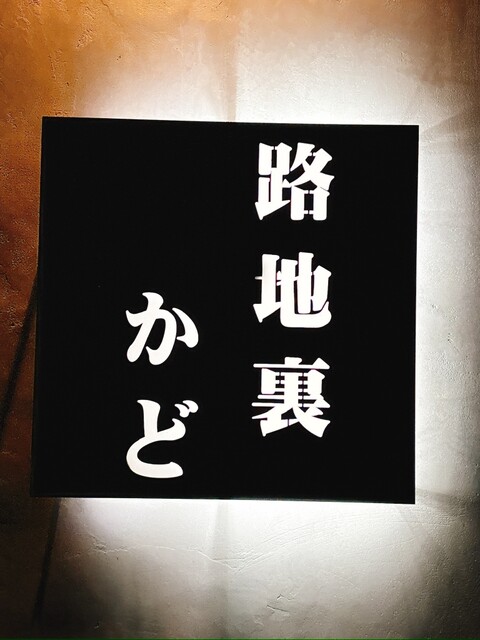 路地裏
かど